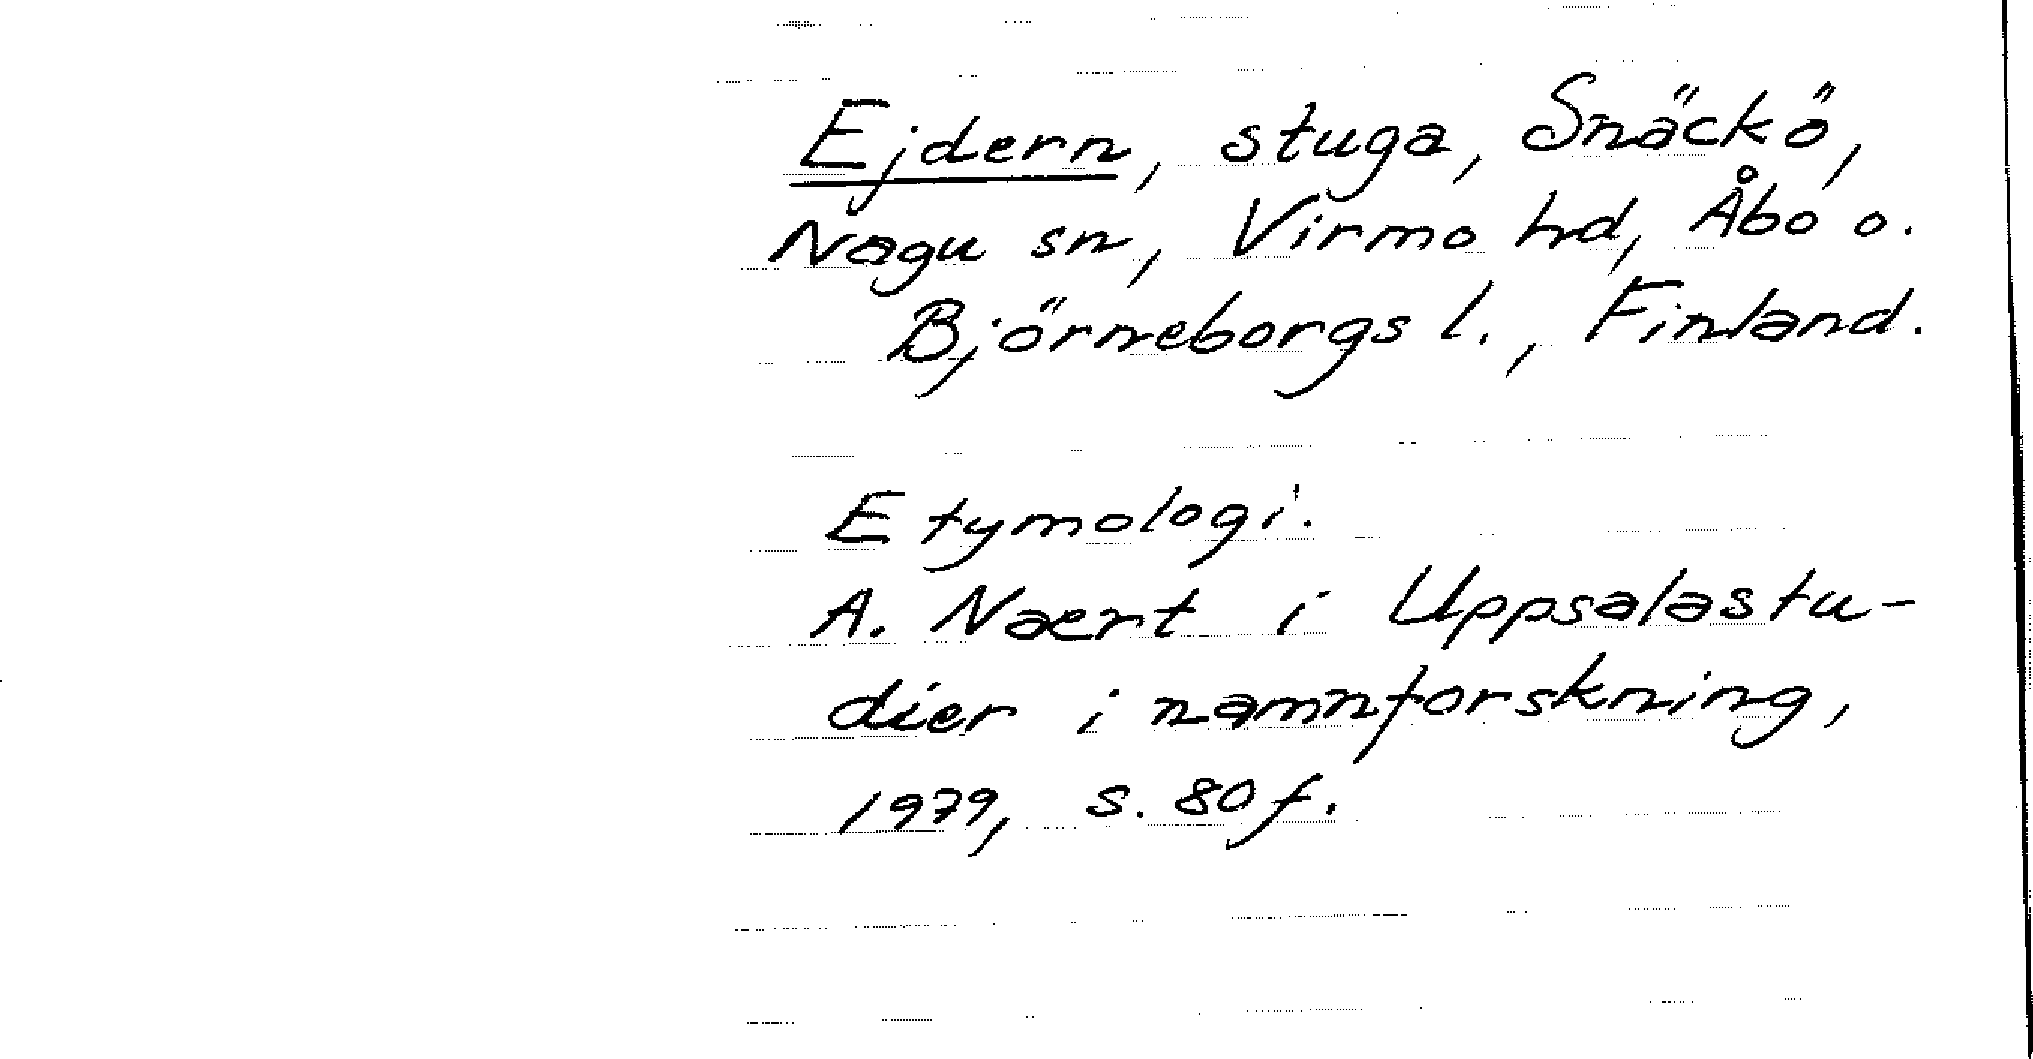 Ejdern, stuga, Snäckö,
Nagu sn, Virmo hd, Åbo o.
Björneborgs l., Finland.
Etymologi.
A. Naert i Uppsalastu-
dier i namnforskning,
1979, s. 80 f.